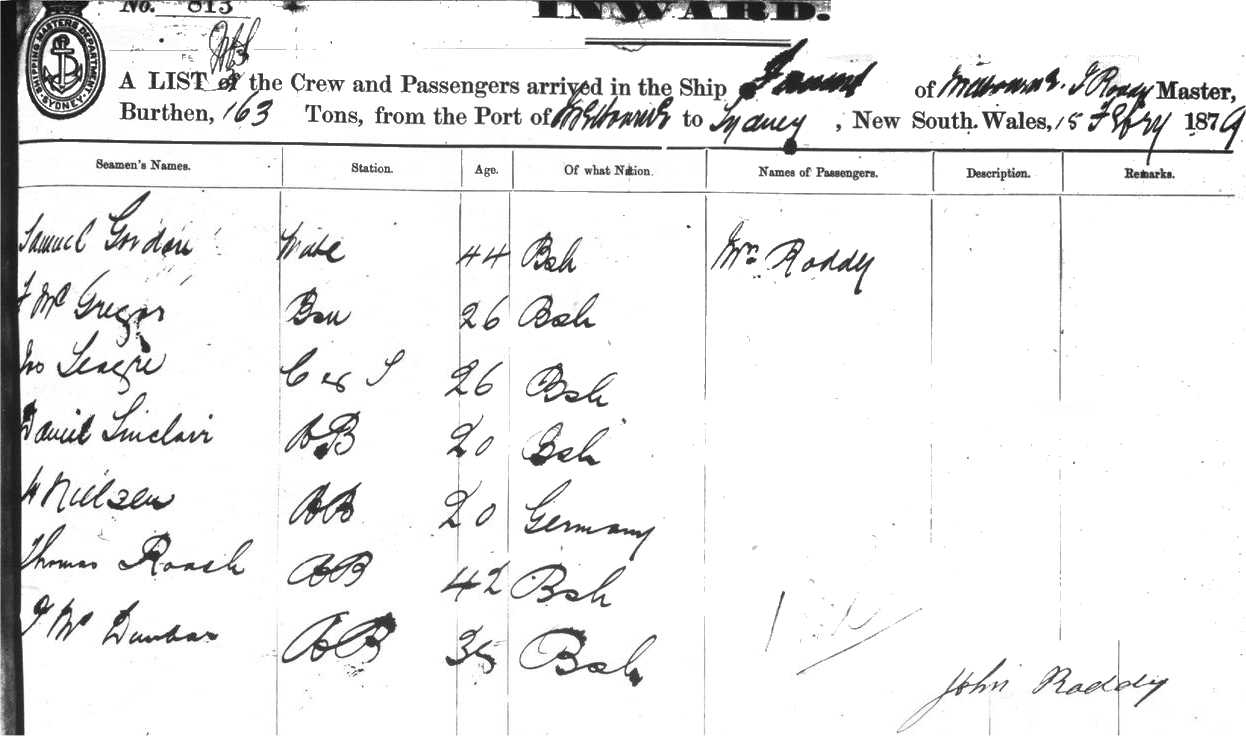 No. 813 INWARD.
SHIPPING MASTERS DEPARTMENT SYDNEY
A LIST of the Crew and Passengers arrived in the Ship of Melbourne J Roddy Master,
Burthen, 163 Tons, from the Port of Melbourne to Sydney, New South Wales, 15 Febry 1879
Seamen's Names. Station. Age. Of what Nation. Names of Passengers. Description. Remarks.
Samuel Gordon Mate 44 Bsh Mrs Roddy
Mc Gregor 26 Bsh
C & S 26 Bsh
Daniel Sinclair AB 20 Bsh
Nielsen AB 20 Germany
Thomas Roash AB 42 Bsh
Mc Dunbar AB 35 Bsh
John Roddy